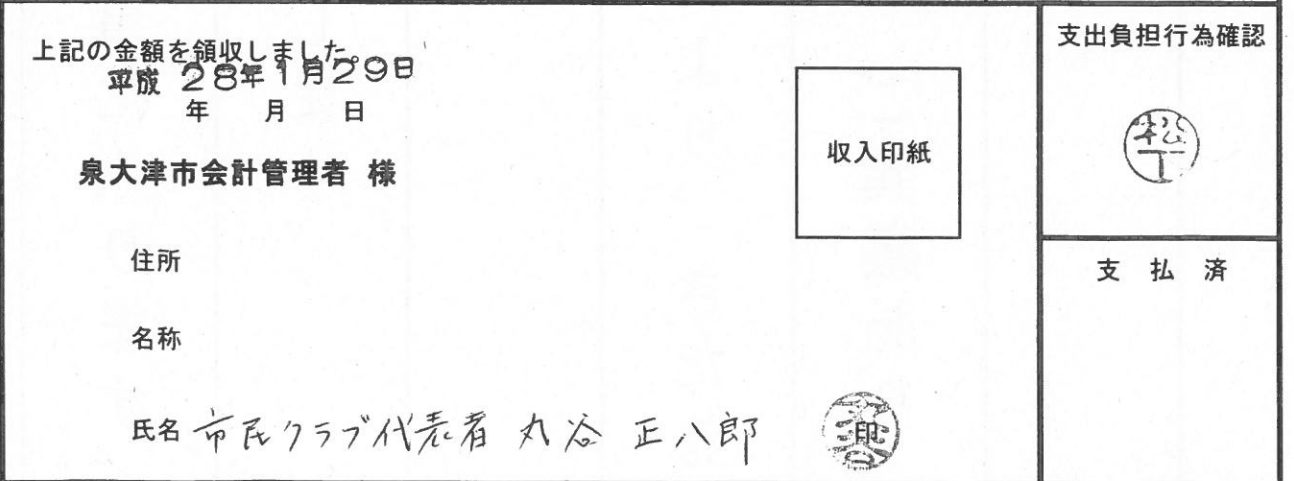 上記の金額を領収しました。
平成 28年1月29日
年 月 日
泉大津市会計管理者 様
収入印紙
住所
名称
氏名 市民クラブ代表者 丸谷 正八郎
印
支出負担行為確認
松下
支払済